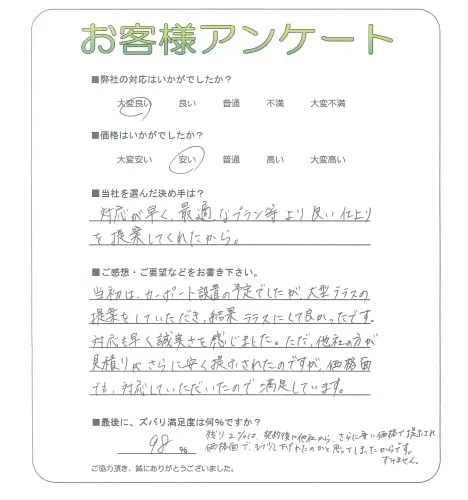 お客様アンケート
■弊社の対応はいかがでしたか?
大変良い 良い 普通 不満 大変不満
■価格はいかがでしたか?
大変安い 安い 普通 高い 大変高い
■当社を選んだ決め手は?
対応が早く、最適なプラン等より良い仕上り
を提案してくれたから。
■ご感想・ご要望などをお書き下さい。
当初は、カーポート設置の予定でしたが、大型テラスの
提案をしていただき、結果テラスにして良かったです。
対応も早く誠実さを感じました。ただ、他社の方が
見積りがさらに安く提示されたのですが、価格面
でも、対応していただいたので満足しています。
■最後に、ズバリ満足度は何%ですか?
98 %
残り2%は、契約後に他社から、さらに安い価格で提示され、
価格面で、もう少し下げれたのかと思ってしまったからです。
すみません。
ご協力頂き、誠にありがとうございました。